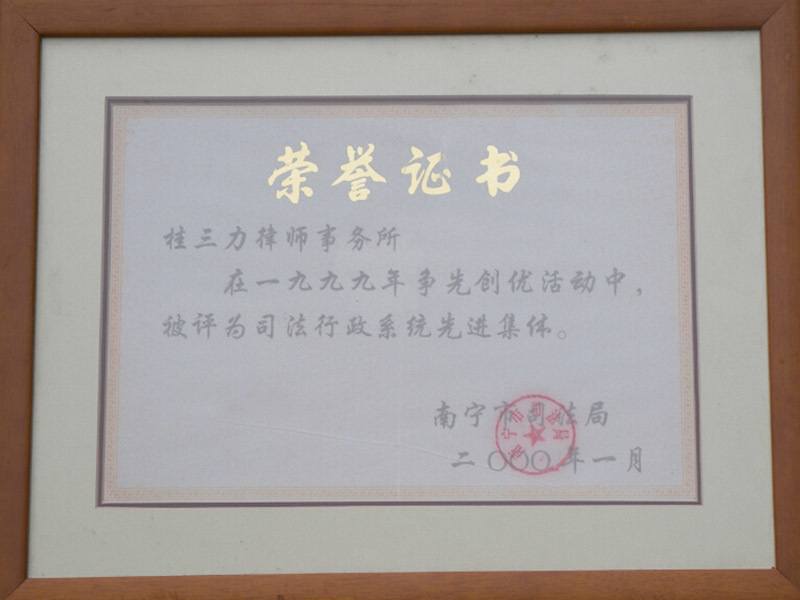 荣誉证书
桂三力律师事务所
在一九九九年争先创优活动中，
被评为司法行政系统先进集体。
南宁市司法局
二〇〇〇年一月
南宁市司法局